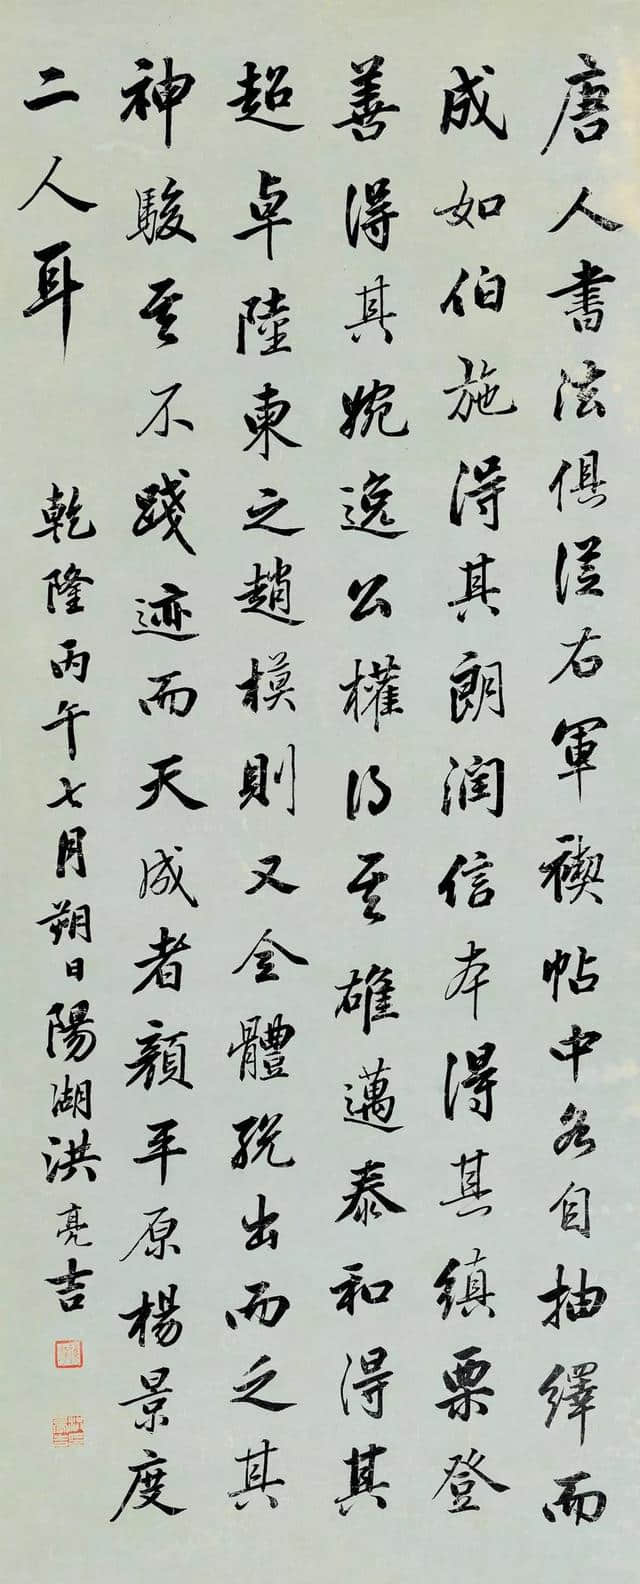 唐人書法俱從右軍禊帖中各自抽繹而
成如伯施得其朗潤信本得其縝栗登
善得其婉逸公權得其雄邁泰和得其
超卓陸東之趙模則又全體脫出而乏其
神駿其不踐迹而天成者顏平原楊景度
二人耳
乾隆丙午七月朔日陽湖洪亮吉